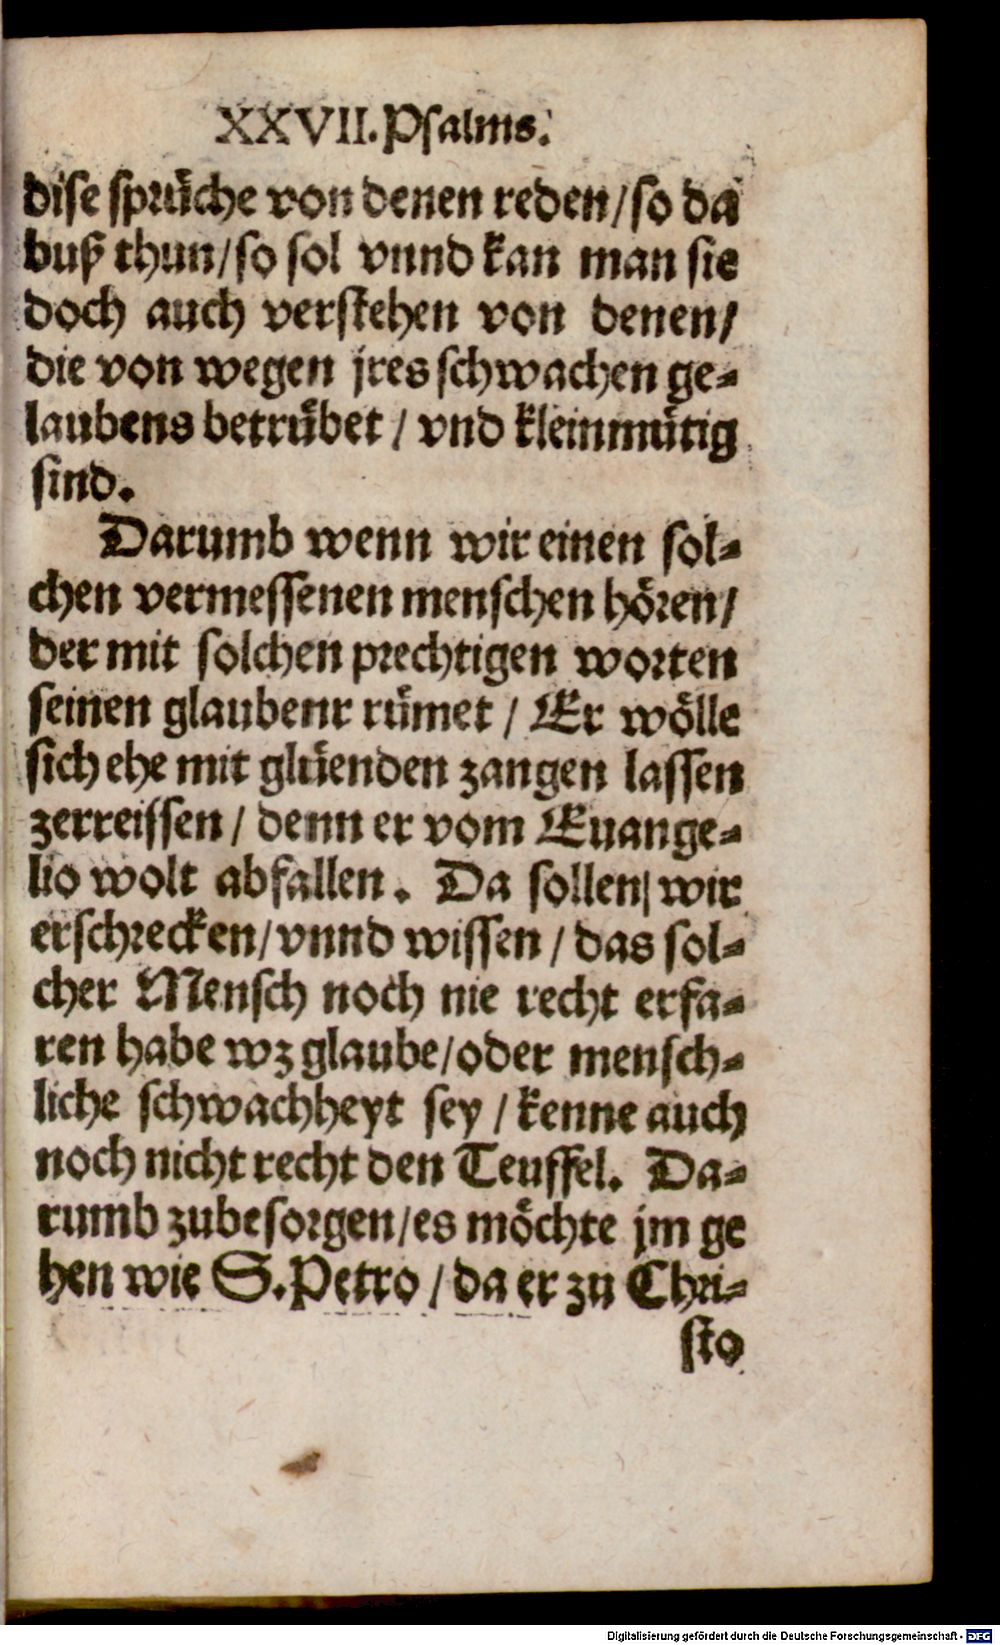 XXVII. Psalms.
dise sprüche von denen reden/ so da
buß thun/ so sol vnnd kan man sie
doch auch verstehen von denen/
die von wegen jres schwachen ge⸗
laubens betrübet / vnd kleinmütig
sind.
Darumb wenn wir einen sol⸗
chen vermessenen menschen hören/
der mit solchen prechtigen worten
seinen glaubenr rümet / Er wölle
sich ehe mit glüenden zangen lassen
zerreissen / denn er vom Euange⸗
lio wolt abfallen. Da sollen wir
erschrecken/ vnnd wissen / das sol⸗
cher Mensch noch nie recht erfa⸗
ren habe wz glaube/ oder mensch⸗
liche schwachheyt sey / kenne auch
noch nicht recht den Teuffel. Da⸗
rumb zubesorgen/ es möchte jm ge
hen wie S. Petro / da er zu Chri⸗
sto
Digitalisierung gefördert durch die Deutsche Forschungsgemeinschaft - DFG